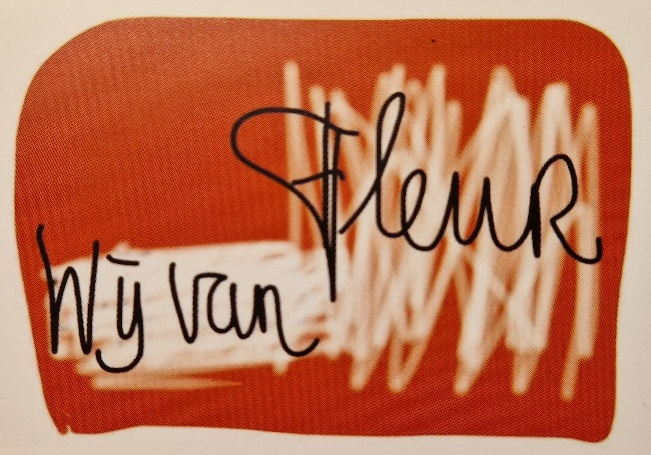 Wij van
Fleur